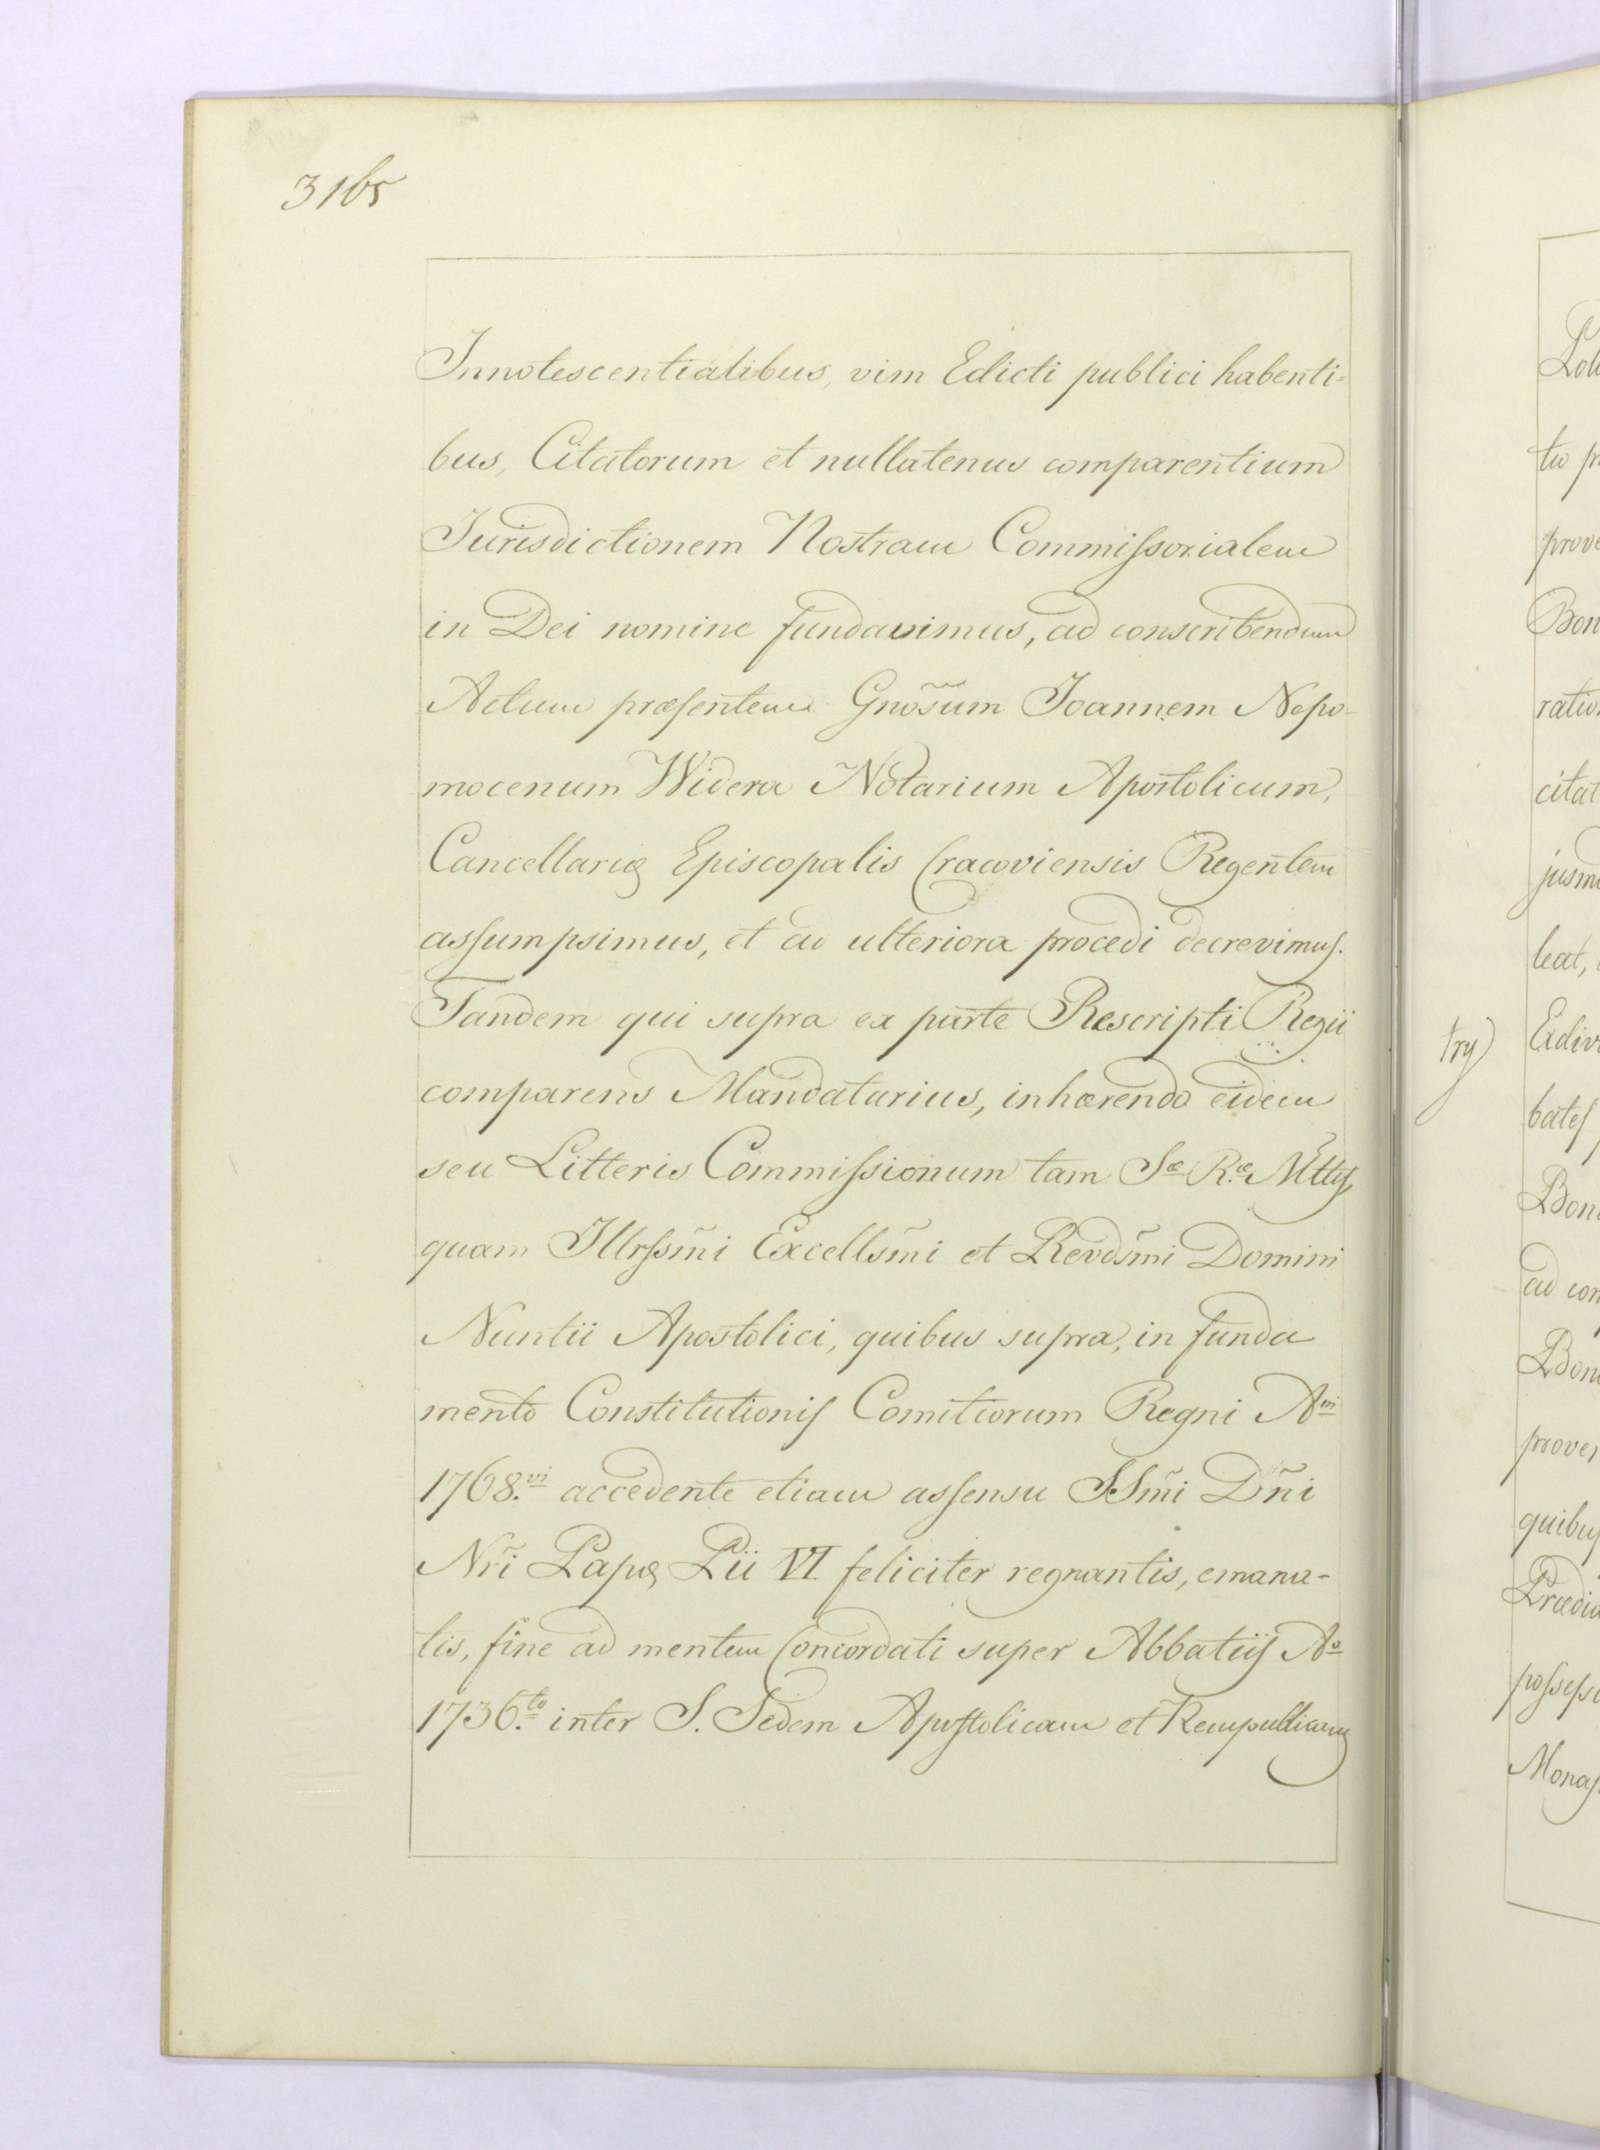 3165
Innotescentialibus, vim Edicti publici habenti=
bus, Citatorum et nullatenus comparentium
Jurisdictionem Nostram Commissorialem
in Dei nomine fundavimus, ad conscribendum
Actum præsentem Gnõsum Joannem Nepo-
mocenum Widera Notarium Apostolicum,
Cancellariæ Episcopalis Cracoviensis Regentem
assumpsimus, et ad ulteriora procedi decrevimus.
Tandem qui supra ex parte Rescripti Regii
comparens Mandatarius, inhærendo eidem
seu Litteris Commissionum tam Sæ Ræ Mttis
quam Illrssm̃i Excellsm̃i et Revdsm̃i Domini
Nuntii Apostolici, quibus supra, in funda
mento Constitutionis Comitiorum Regni Ani
1768.vi accedente etiam assensu SSm̃i Dñi
Nr̃i Papæ Pii VI feliciter regnantis, emana-
tis, fine ad mentem Concordati super Abbatiis Ao
1736.to inter S. Sedem Apostolicam et Rempublicam
try)
Bon
ratio
citat
jusm
leat,
bates
Bon
ad con
Bon
prove
quibus
Prædia
possess
Monas